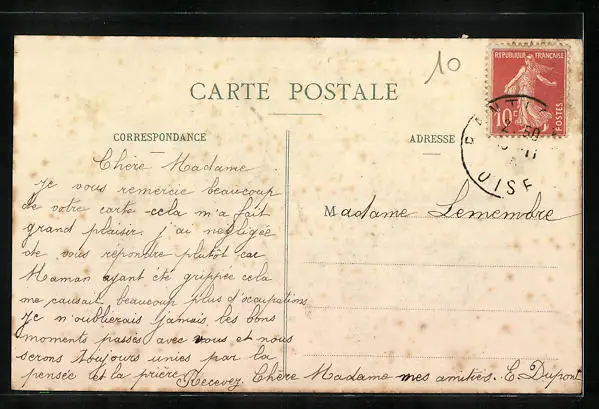 10
REPUBLIQUE FRANÇAISE
10c
POSTES
OISE
CARTE POSTALE
CORRESPONDANCE
ADRESSE
Chère Madame
Je vous remercie beaucoup
de votre carte cela m'a fait
grand plaisir j'ai negligée
de vous répondre plutôt car
Maman ayant été grippée cela
me causait beaucoup plus d'ocupations
Je n'oublierais jamais les bons
moments passés avec vous et nous
serons toujours unies par la
pensée et la prière
Recevez Chère Madame mes amitiés. E Dupont
Madame Lemembre